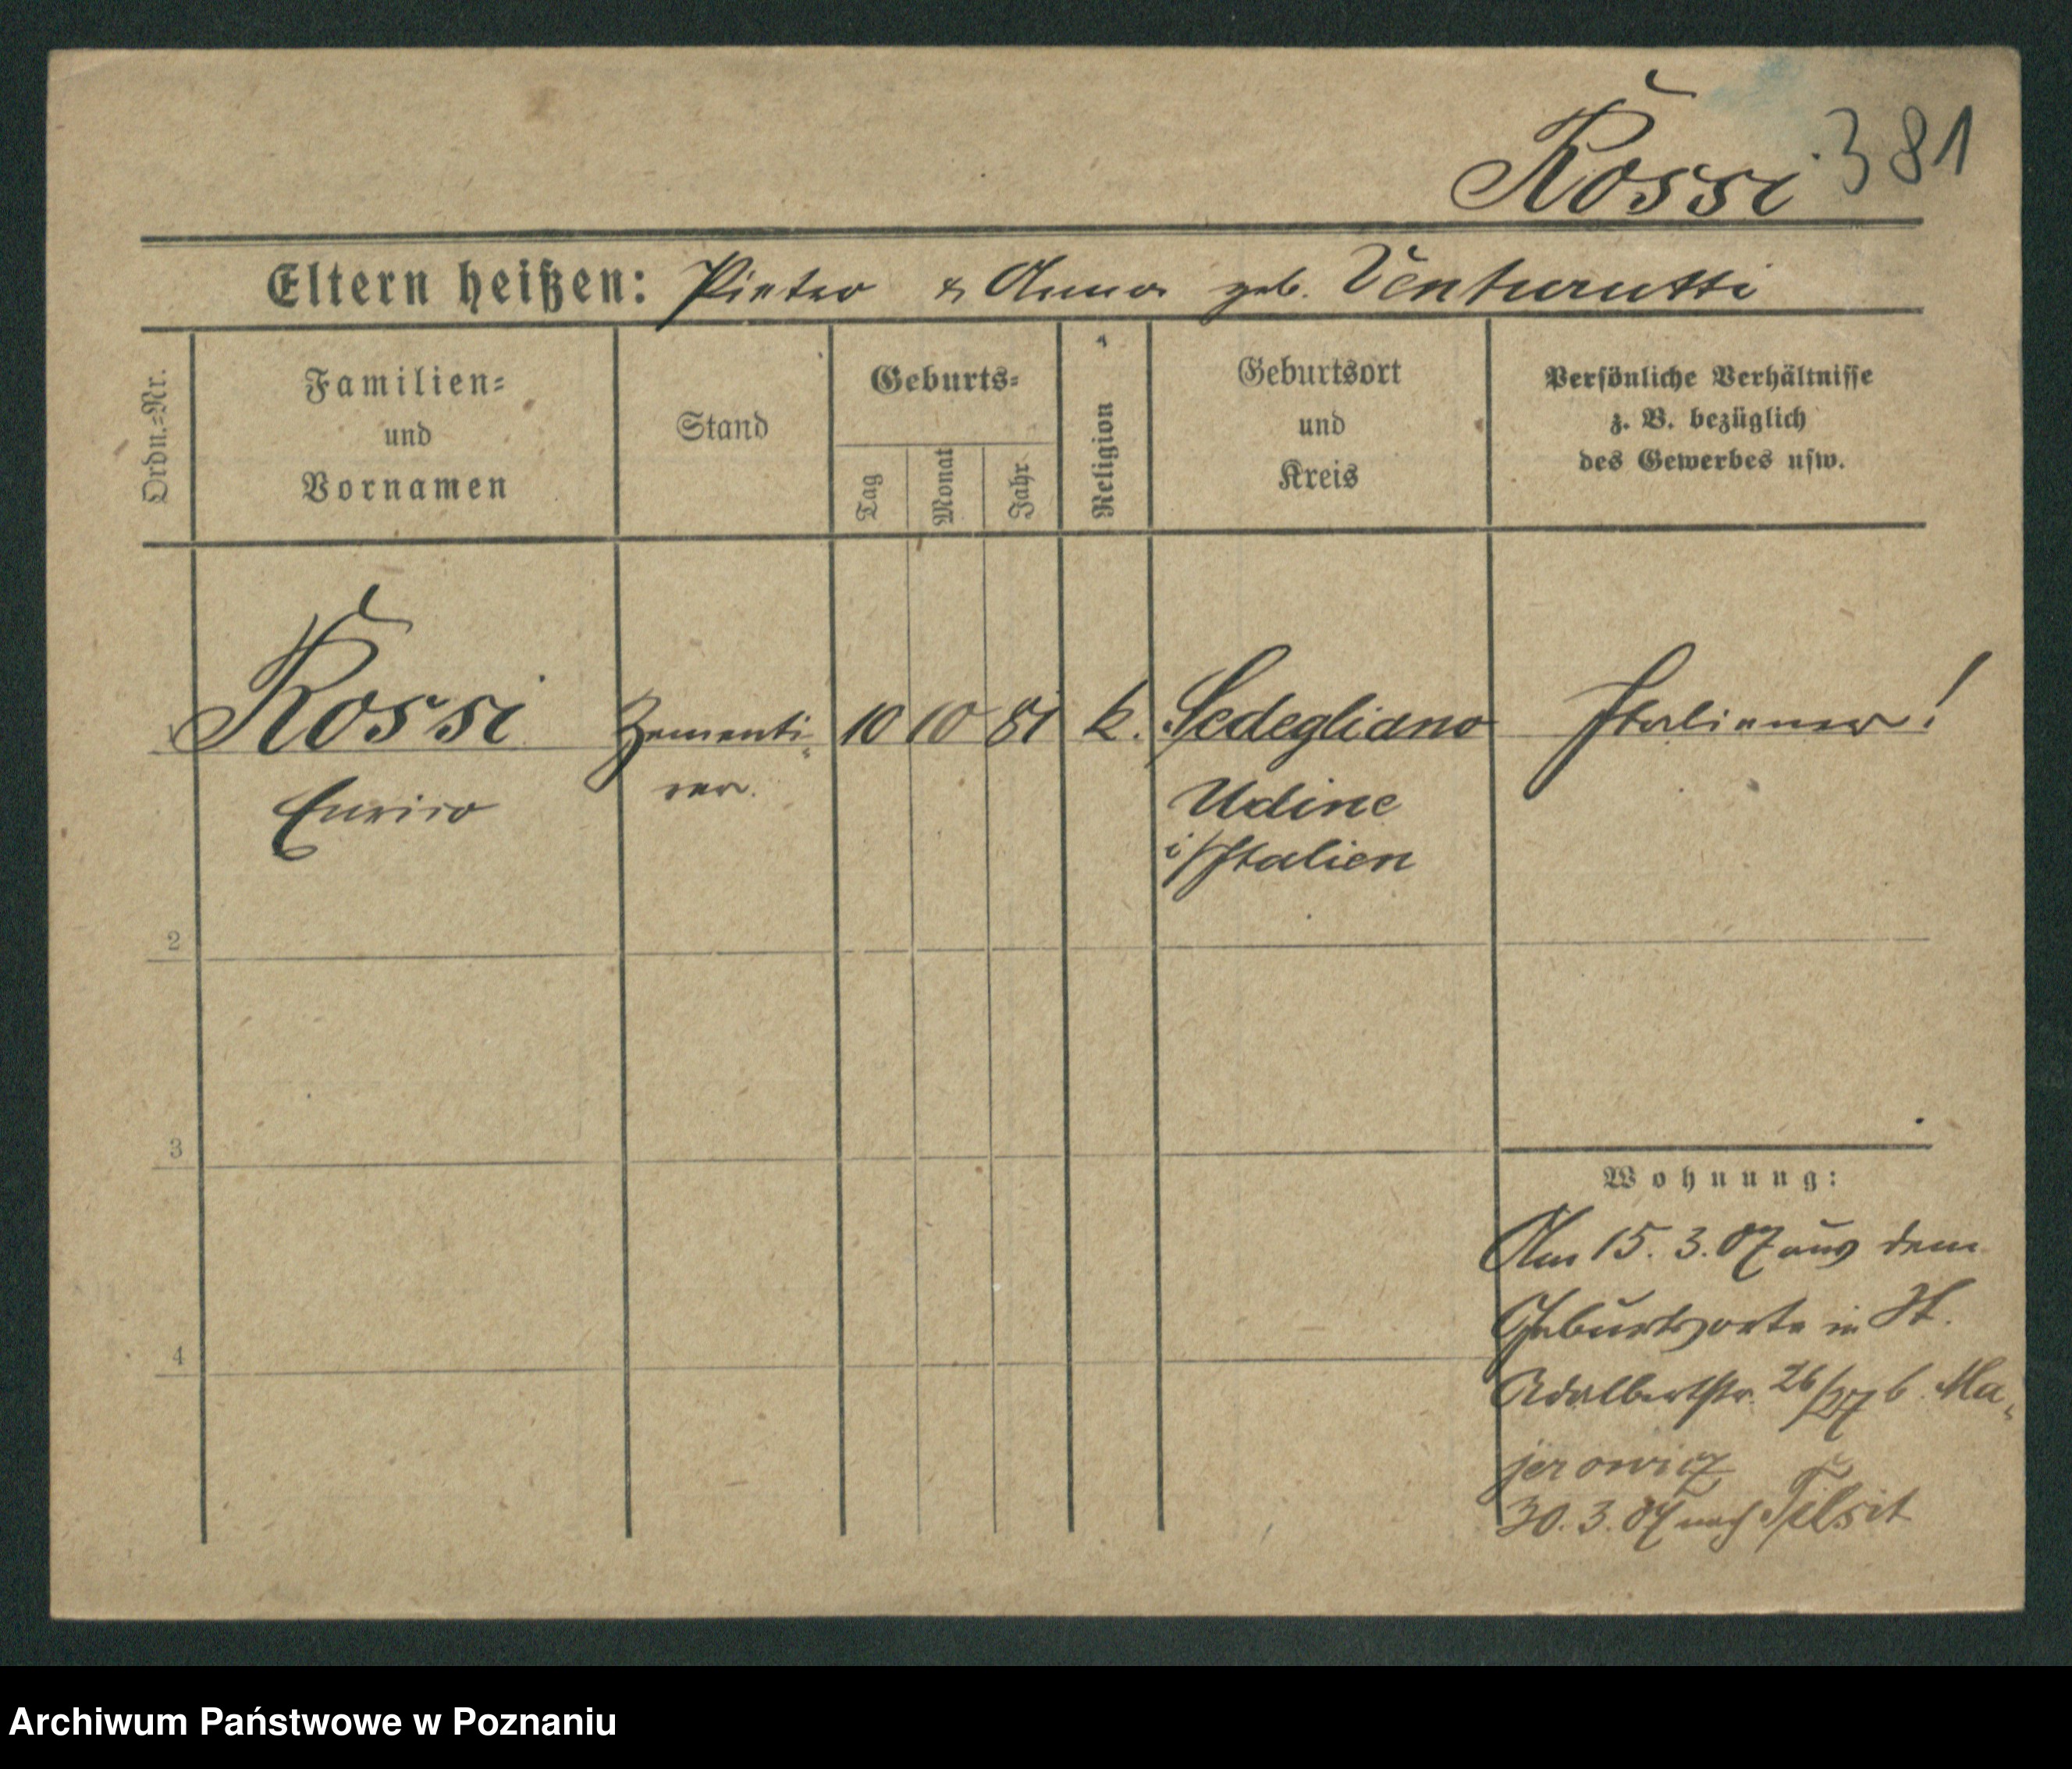 Rossi 381
Eltern heißen: Pietro & Anna geb. Venturutti
Ordn.=Nr.
Familien=
und
Vornamen
Stand
Geburts=
Tag
Monat
Jahr
Religion
Geburtsort
und
Kreis
Persönliche Verhältnisse
z. B. bezüglich
des Gewerbes usw.
Rossi Zementi- 10 10 81 k. Sedegliano Italiener!
Enrico rer. Udine
i/Italien
2
3
4
Wohnung:
Am 15. 3. 07 aus dem
Geburtsorte in St.
Adalbertstr. 26/27 b. Ma-
jerowicz
30. 3. 07 nach Tilsit
Archiwum Państwowe w Poznaniu